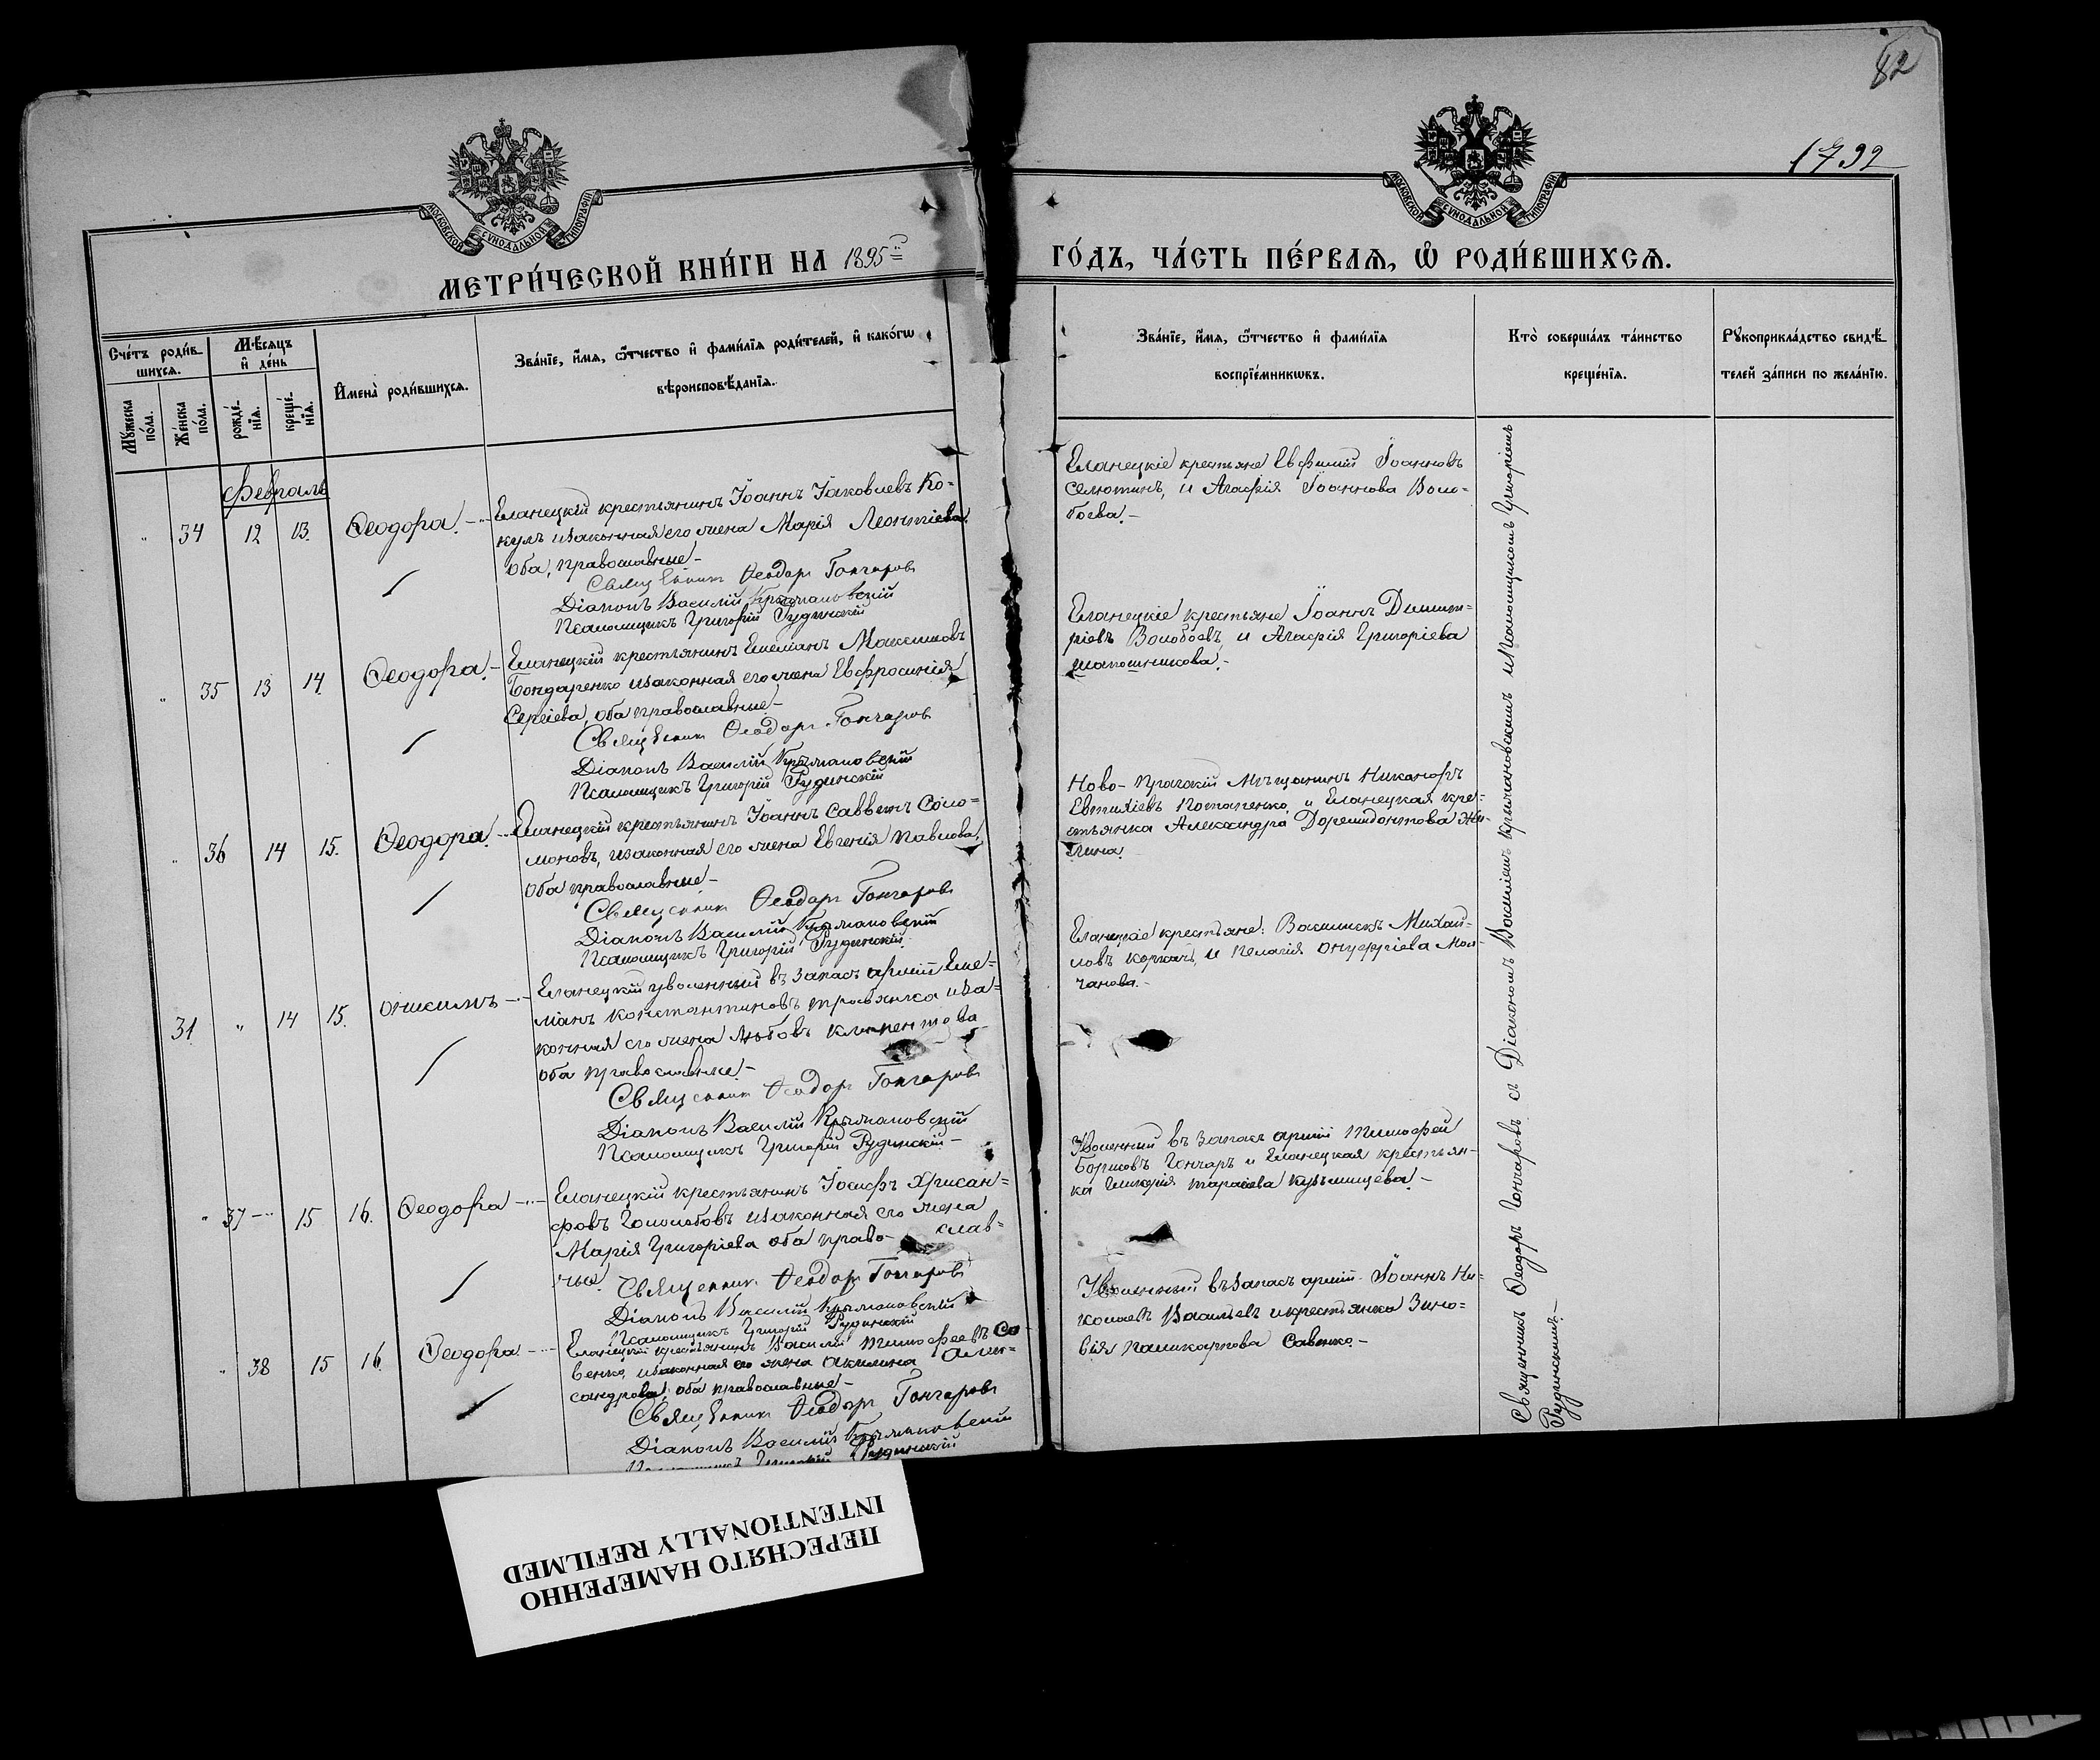 82
1792
МОСКОВСКОЙ СѴНОДАЛЬНОЙ ТИПОГРАФІИ
МОСКОВСКОЙ СѴНОДАЛЬНОЙ ТИПОГРАФІИ
МЕТРИ́ЧЕСКОЙ КНИ́ГИ НА 1895й
ГО́ДЪ, ЧА́СТЬ ПЕ́РВАѦ, Ѡ҆ РОДИ́ВШИХСѦ.
Сче́тъ роди́в-
шихсѧ.
Мꙋ́жеска по́ла.
Же́нска по́ла.
Мѣ́сѧцъ и҆ де́нь
рожде́-нїѧ.
креще́-нїѧ.
И҆мена̀ роди́вшихсѧ.
Зва́нїе, и҆́мѧ, ѻ҆́тчество и҆ фами́лїѧ роди́телей, и҆ како́гѡ
вѣроисповѣ́данїѧ.
Зва́нїе, и҆́мѧ, ѻ҆́тчество и҆ фами́лїѧ
воспрїе́мникѡвъ.
Кто̀ соверша́лъ та́инство
креще́нїѧ.
Рꙋкоприкла́дство свидѣ́-
телей за́писи по жела́нїю.
Февраль
" 34 12 13. Ѳеодора.
Еланецкій крестьянинъ Іоаннъ Іаковлевъ Ко-
кулъ изаконная его жена Марія Леонтіева
оба, православные
Священник Ѳеодоръ Гончаровъ
Діаконъ Василій Крыжановскій
Псаломщикъ Григорій Рудинскій
Еланецкіе крестьяне Евфимій Іоанновъ
Селютинъ, и Агафія Іоаннова Воло-
боева.
" 35 13 14. Ѳеодора.
Еланецкій крестьянинъ Емеліанъ Максимовъ
Бондаренко изаконная его жена Евфросинія
Сергіева, оба православные
Священник Ѳеодоръ Гончаровъ
Діаконъ Василій Крыжановскій
Псаломщикъ Григорій Рудинскій
Еланецкіе крестьяне Іоаннъ Димит-
ріевъ Волобоевъ, и Агафія Григоріева
Шапошникова.
" 36 14 15. Ѳеодора.
Еланецкій крестьянинъ Іоаннъ Саввинъ Соло-
моновъ, изаконная его жена Евгенія Павлова,
оба православные
Священник Ѳеодоръ Гончаровъ
Діаконъ Василій Крыжановскій
Псаломщикъ Григорій Рудинскій
Ново-Пражскій Мѣщанинъ Никаноръ
Евтихіевъ Потапенко, и Еланецкая кре-
стьянка Александра Доримедонтова
31 " 14 15. Онисимъ
Еланецкій уволенный въ запасъ арміи Еме-
ліанъ Константиновъ иза-
конная его жена Любовь Климентова
оба православные
Священник Ѳеодоръ Гончаровъ
Діаконъ Василій Крыжановскій
Псаломщикъ Григорій Рудинскій
Еланецкіе крестьяне: Василискъ Михаи-
ловъ Коркачъ, и Пелагія Онуфріева Мол-
чанова.
" 37 15 16. Ѳеодора
Еланецкій крестьянинъ Іосифъ Хрисан-
фовъ Гололобовъ изаконная его жена
Марія Григоріева оба право- слав-
ные.
Священник Ѳеодоръ Гончаровъ
Діаконъ Василій Крыжановскій
Псаломщикъ Григорій Рудинскій
Уволенный въ запасъ арміи Тимофей
Борисовъ Гончаръ и Еланецкая крестьян-
ка Гликерія Тарасова Кузьмищева.
" 38 15 16. Ѳеодора
Еланецкій крестьянинъ Василій Тимофеевъ Са-
венко, изаконная его жена Акилина Алек-
сандрова, оба православные
Священник Ѳеодоръ Гончаровъ
Діаконъ Василій Крыжановскій
Псаломщикъ Григорій Рудинскій
Уволенный въ запасъ арміи Іоаннъ Ни-
колаевъ Васильевъ и крестьянка Зино-
вія Поликарпова Савенко
Священникъ Ѳеодоръ Гончаровъ съ Діакономъ Василіемъ Крыжановскимъ иПсаломщикомъ Григоріемъ
Рудинскимъ.
ПЕРЕСНЯТО НАМЕРЕННО
INTENTIONALLY REFILMED